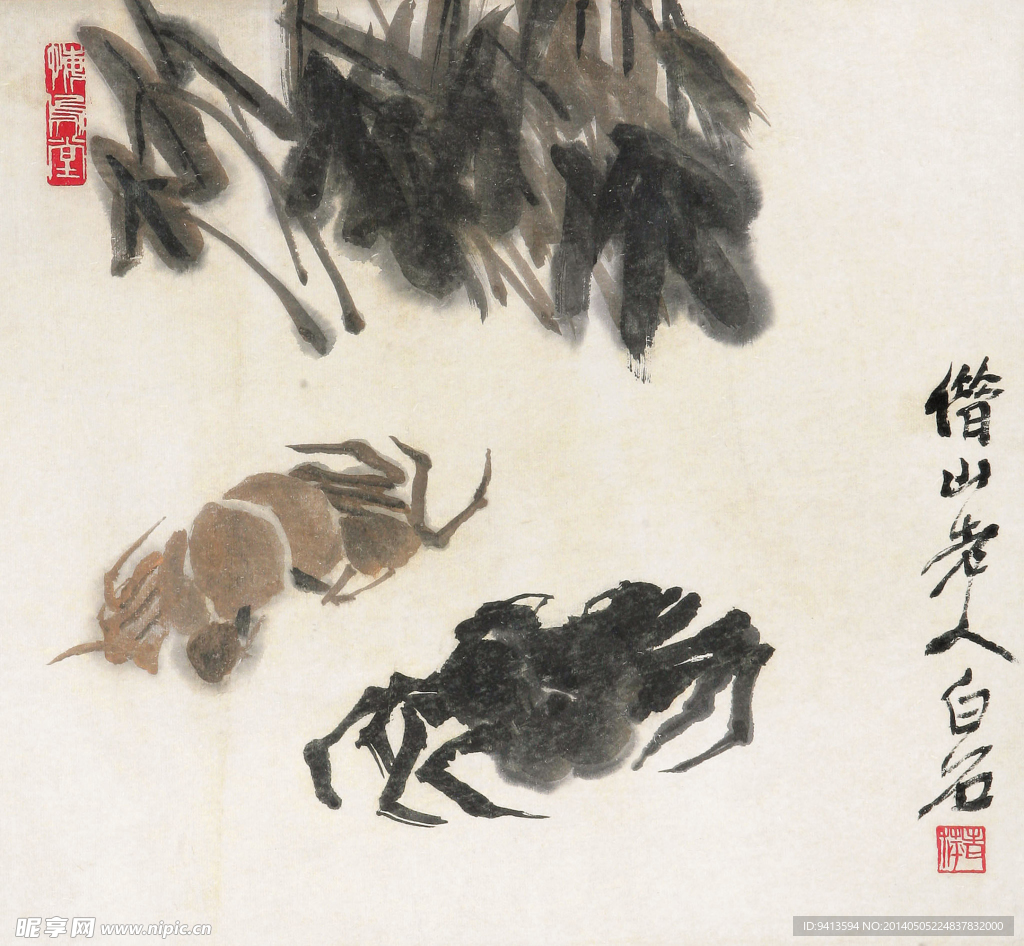 悔烏堂
借山老人白石
老萍
昵享网 www.nipic.cn
ID:9413594 NO:20140505224837832000